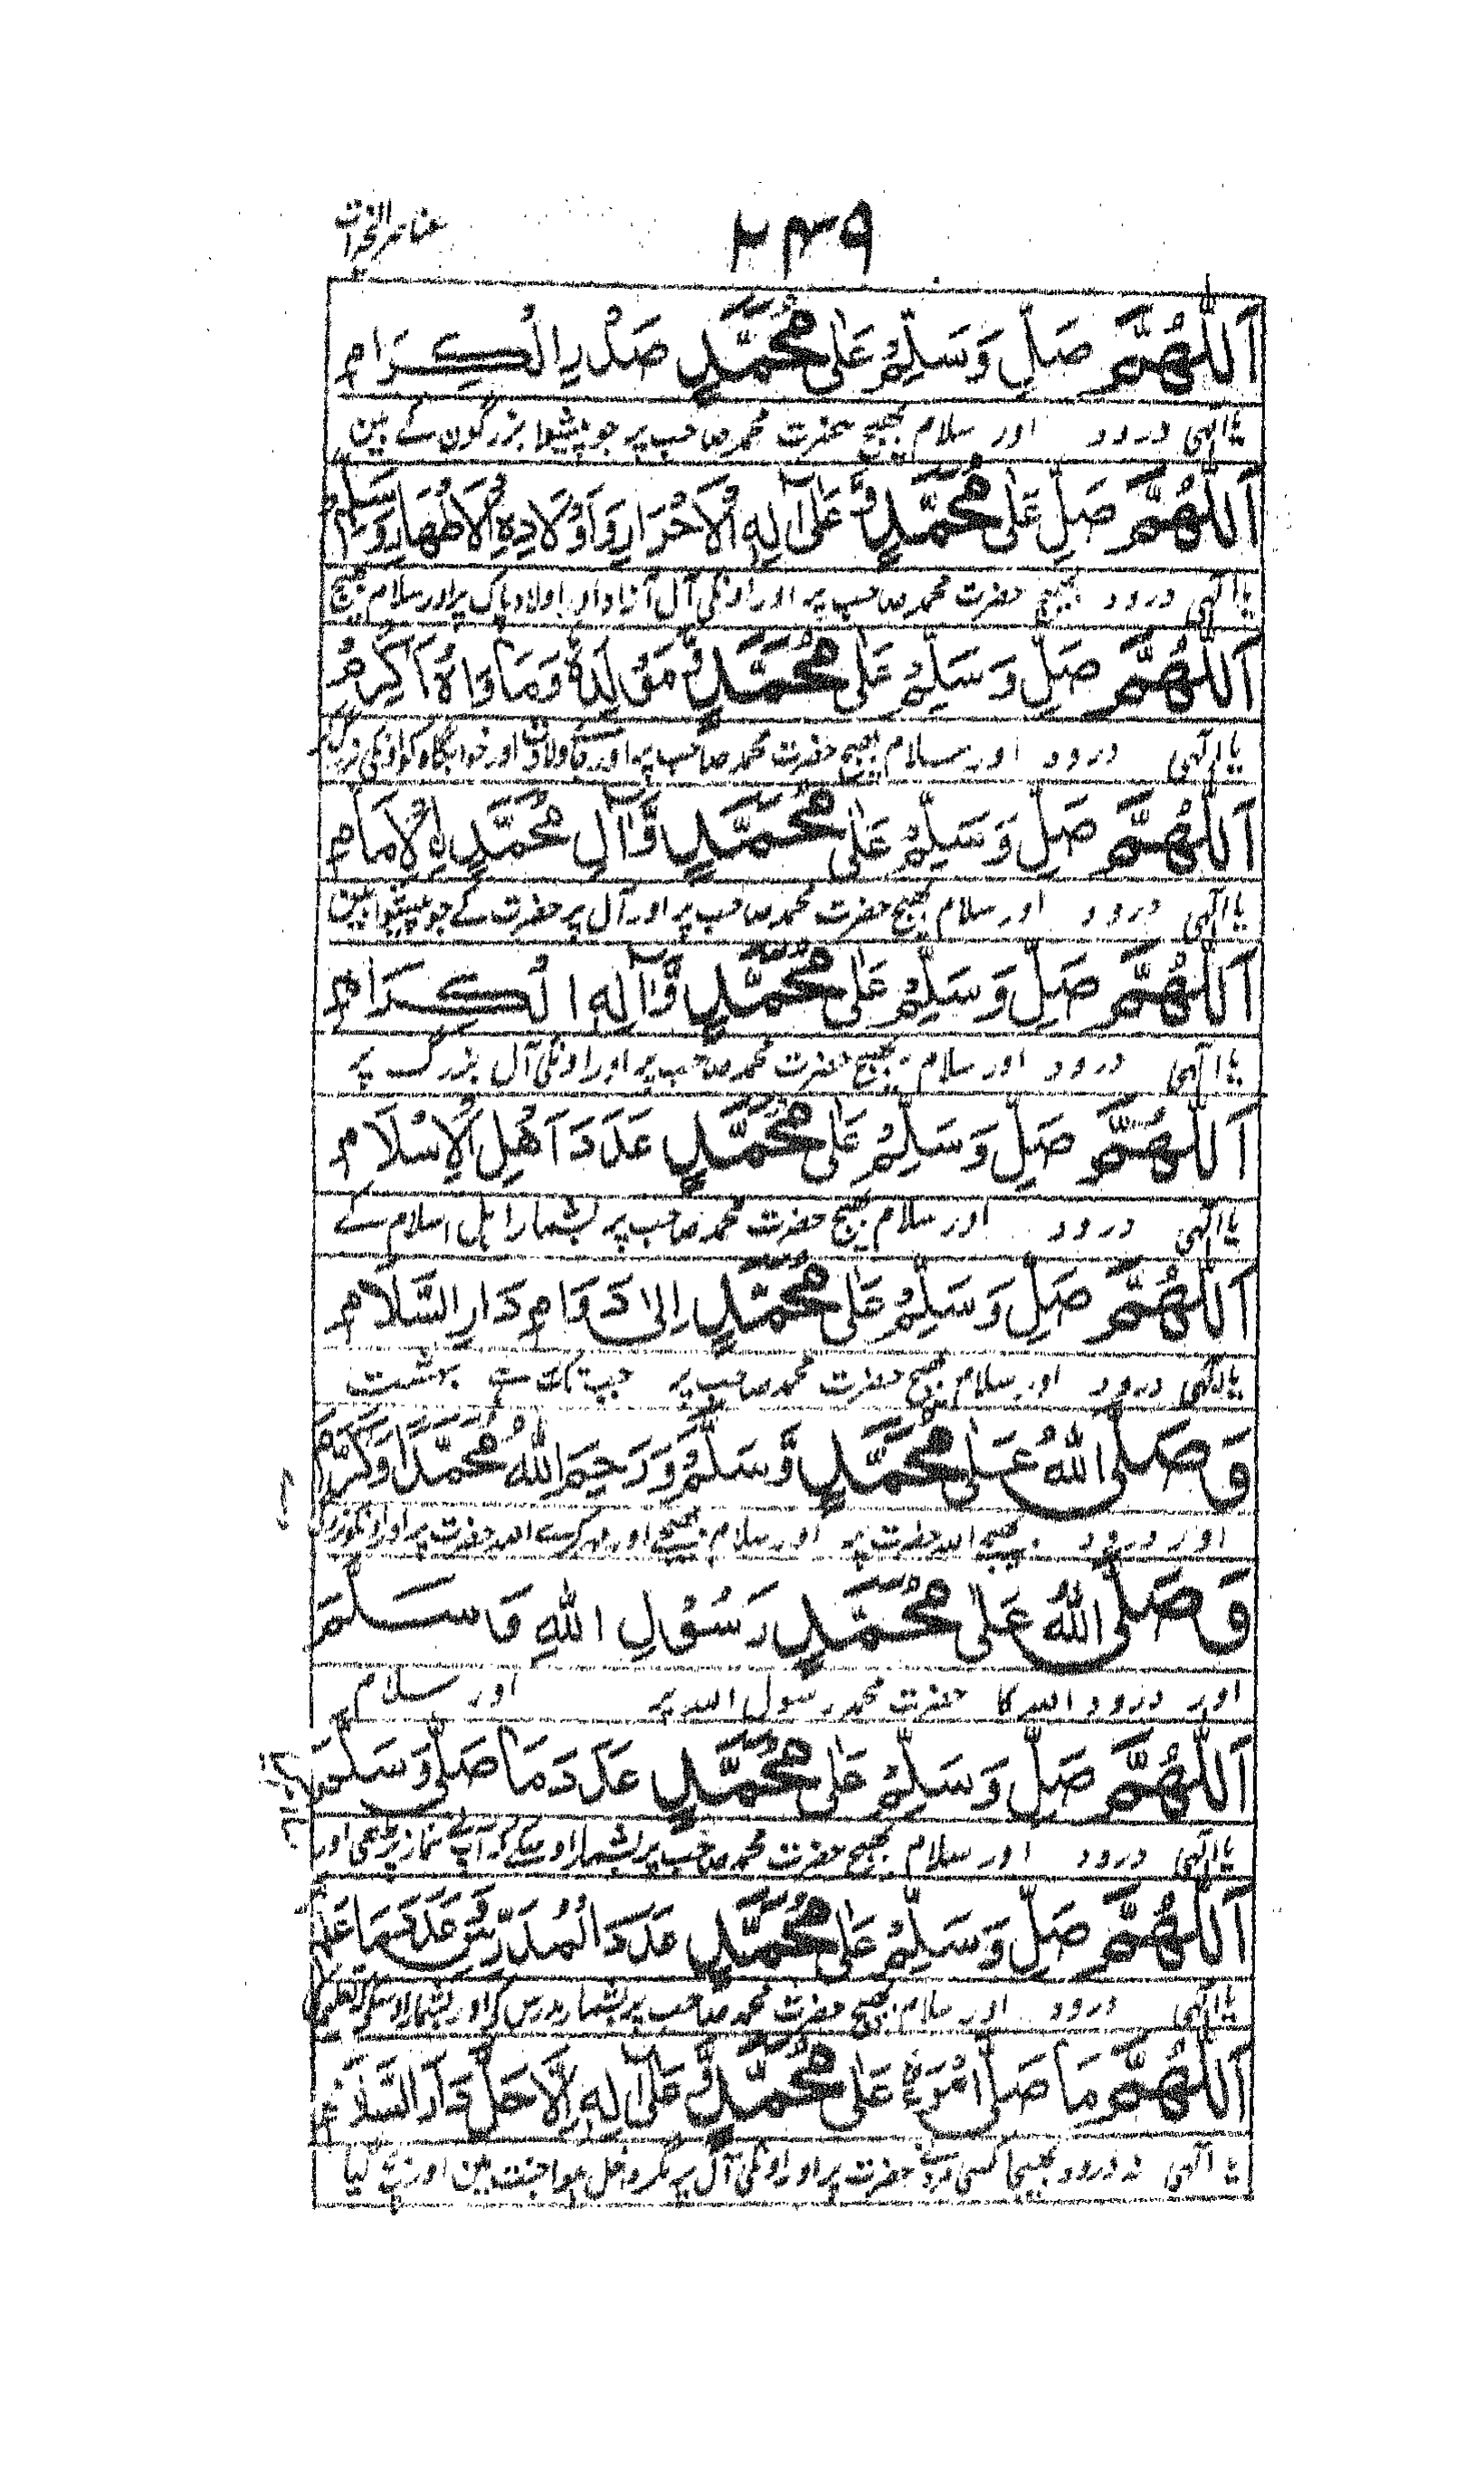 ۲۳۹
عناصر الخیرات
اَللّٰهُمَّ صَلِّ وَسَلِّمْ عَلٰى مُحَمَّدٍ صَدْرِ الْكِرَامِ
یا الٰہی درود اور سلام بھیج حضرت محمد صاحب پر جو پیشوا بزرگون کے ہین
اَللّٰهُمَّ صَلِّ عَلٰى مُحَمَّدٍ وَّعَلٰى اٰلِهِ الْاَحْرَارِ وَاَوْلَادِهِ الْاَطْهَارِ وَسَلِّمْ
یا الٰہی درود بھیج حضرت محمد صاحب پر اور اونکی آل آزاد اور اولاد پاک پر اور سلام بھیج
اَللّٰهُمَّ صَلِّ وَسَلِّمْ عَلٰى مُحَمَّدٍ وَّمَوْلِدَهٗ وَمَاْوَاهُ اَكْرِمْ
یا الٰہی درود اور سلام بھیج حضرت محمد صاحب پر اور اور خوابگاہ کو اونکی
اَللّٰهُمَّ صَلِّ وَسَلِّمْ عَلٰى مُحَمَّدٍ وَّاٰلِ مُحَمَّدِ ۣالْاِمَامِ
یا الٰہی درود اور سلام بھیج حضرت محمد صاحب پر اور آل پر حضرت کے جو پیشوا ہین
اَللّٰهُمَّ صَلِّ وَسَلِّمْ عَلٰى مُحَمَّدٍ وَّاٰلِهِ الْكِرَامِ
یا الٰہی درود اور سلام بھیج حضرت محمد صاحب پر اور اونکی آل بزرگ پر
اَللّٰهُمَّ صَلِّ وَسَلِّمْ عَلٰى مُحَمَّدٍ عَدَدَ اَهْلِ الْاِسْلَامِ
یا الٰہی درود اور سلام بھیج حضرت محمد صاحب پر بشمار اہل اسلام کے
اَللّٰهُمَّ صَلِّ وَسَلِّمْ عَلٰى مُحَمَّدٍ اِلٰى دَوَامِ دَارِ السَّلَامِ
یا الٰہی درود اور سلام بھیج حضرت محمد صاحب پر جب تک ہے بہشت
وَصَلَّى اللّٰهُ عَلٰى مُحَمَّدٍ وَّسَلَّمَ وَرَحِمَ اللّٰهُ مُحَمَّدًا وَكَرَّمَ
اور درود بھیجے اللہ حضرت پر اور سلام بھیجے اور مہر کرے اللہ حضرت پر اور اونکو
وَصَلَّى اللّٰهُ عَلٰى مُحَمَّدٍ رَسُوْلِ اللّٰهِ وَسَلَّمَ
اور درود اللہ کا حضرت محمد رسول اللہ پر اور سلام
اَللّٰهُمَّ صَلِّ وَسَلِّمْ عَلٰى مُحَمَّدٍ عَدَدَ مَا صَلّٰى وَسَلَّمَ
یا الٰہی درود اور سلام بھیج حضرت محمد صاحب پر بشمار اوسکے کہ آپنے نماز پڑھی اور
اَللّٰهُمَّ صَلِّ وَسَلِّمْ عَلٰى مُحَمَّدٍ عَدَدَ الْمُدَرِّسِ
یا الٰہی درود اور سلام بھیج حضرت محمد صاحب پر بشمار مدرس کے اور بشمار
اَللّٰهُمَّ مَا صَلَّى امْرَءٌ عَلٰى مُحَمَّدٍ وَّعَلٰى اٰلِهٖ اِلَّا حَلَّ دَارَ السَّلَامِ
یا الٰہی نہ درود بھیجا کسی مرد نے حضرت پر اور اونکی آل پر مگر داخل ہوا جنت مین اور